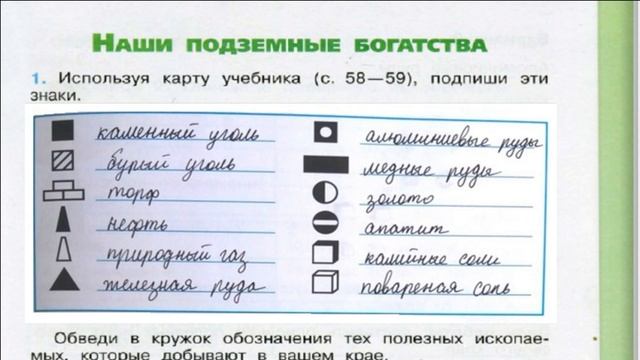 НАШИ ПОДЗЕМНЫЕ БОГАТСТВА
1. Используя карту учебника (с. 58—59), подпиши эти
знаки.
каменный уголь
бурый уголь
торф
нефть
природный газ
железная руда
алюминиевые руды
медные руды
золото
апатит
калийные соли
повареная соль
Обведи в кружок обозначения тех полезных ископае-
мых, которые добывают в вашем крае.